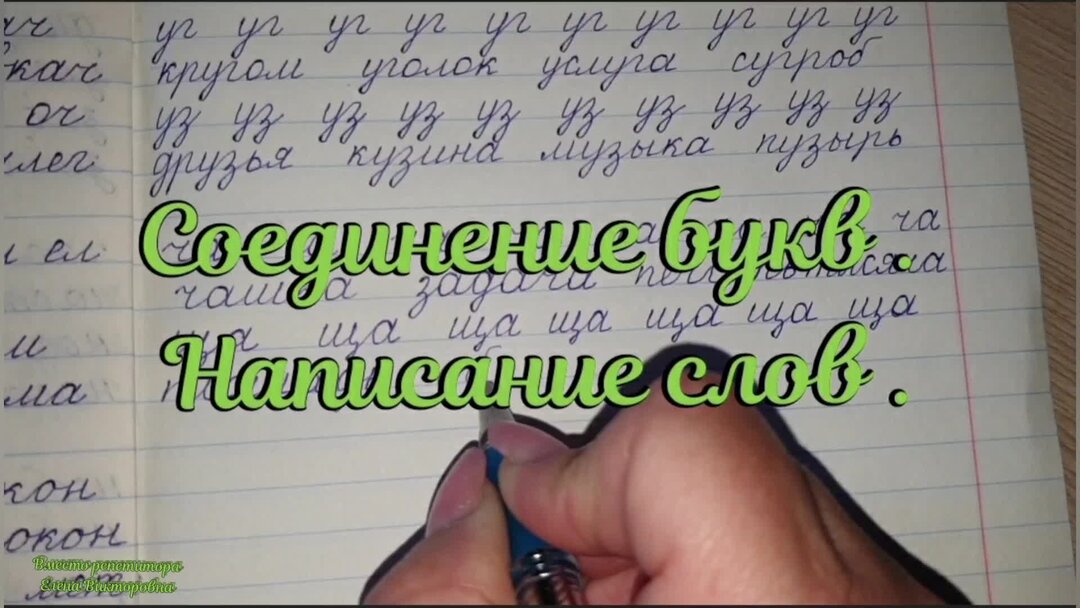 уг уг уг уг уг уг уг уг уг уг
кач кругом уголок услуга сугроб
оч уз уз уз уз уз уз уз уз уз уз
лег друзья кузина музыка пузырь
ел ча
Соединение букв .
чашка задача
ща ща ща ща ща ща ща
Написание слов .
ма
кон
окон
Вместо репетитора
Елена Викторовна